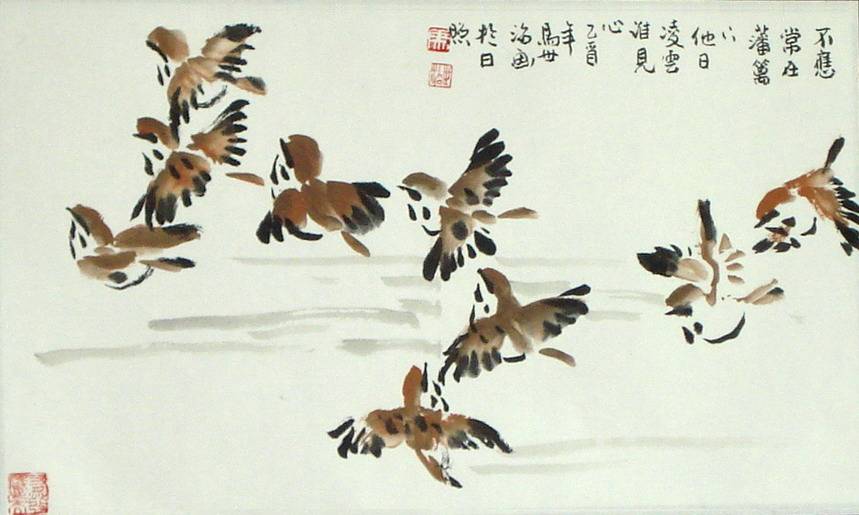 不應
常在
藩篱
下
他日
凌雲
誰見
心
乙酉
年
馬世
治画
於日
照